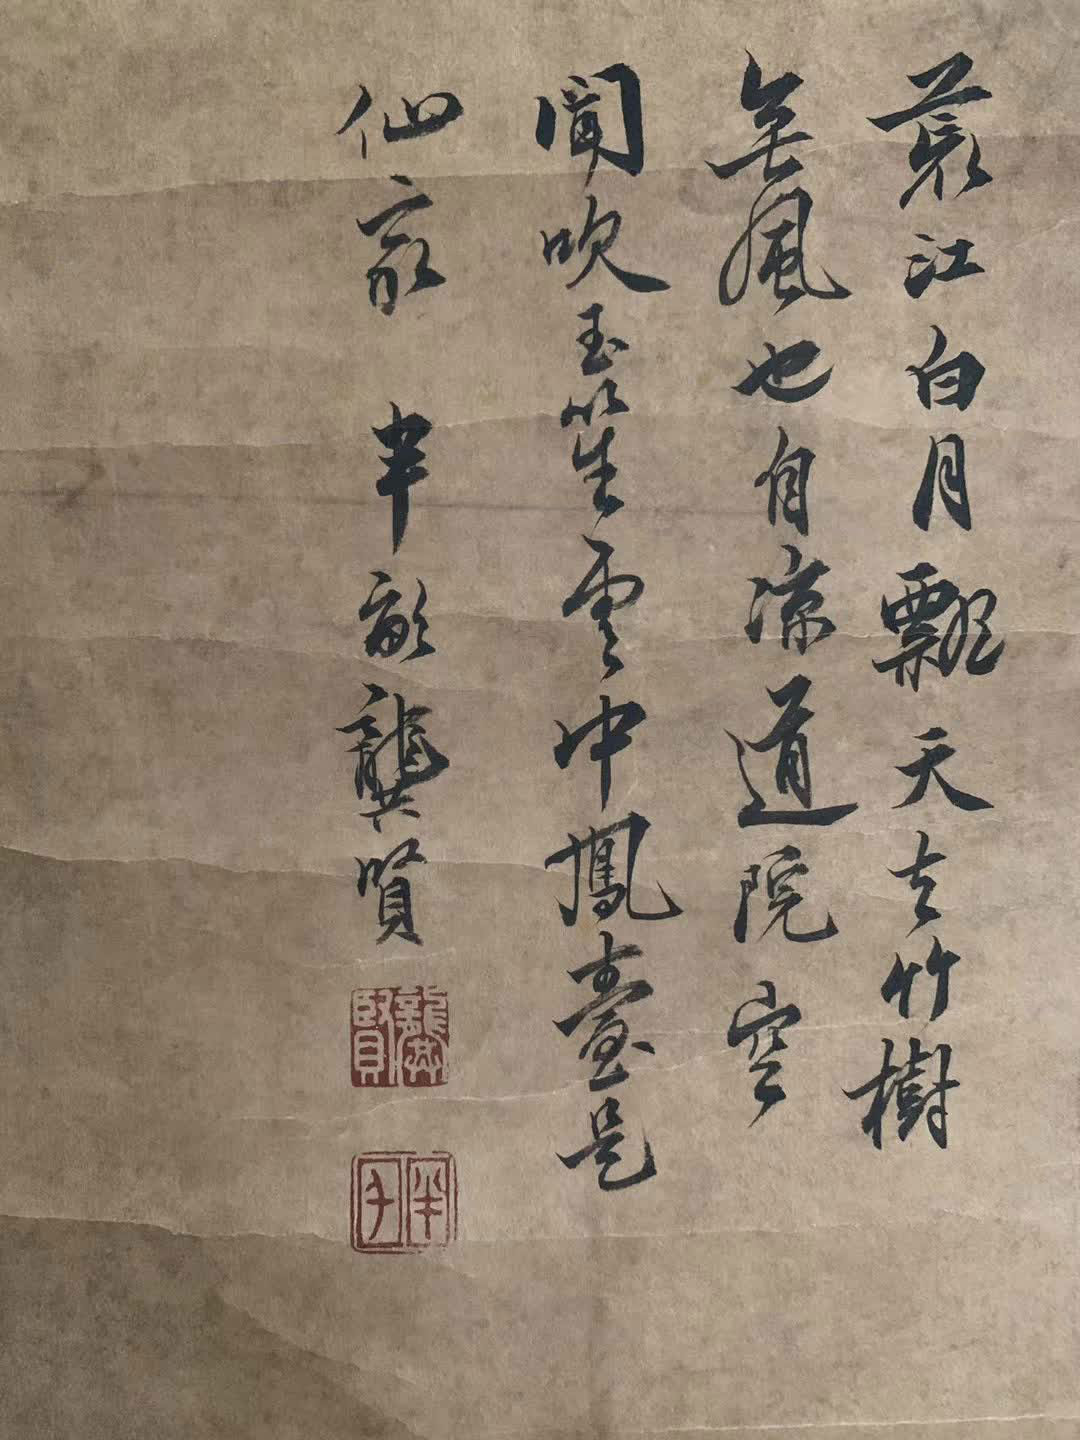 江白月飄天去竹樹
無風也自涼道院空
聞吹玉笙雲中鳳臺是
仙家 半畝龔賢
龔賢
半千